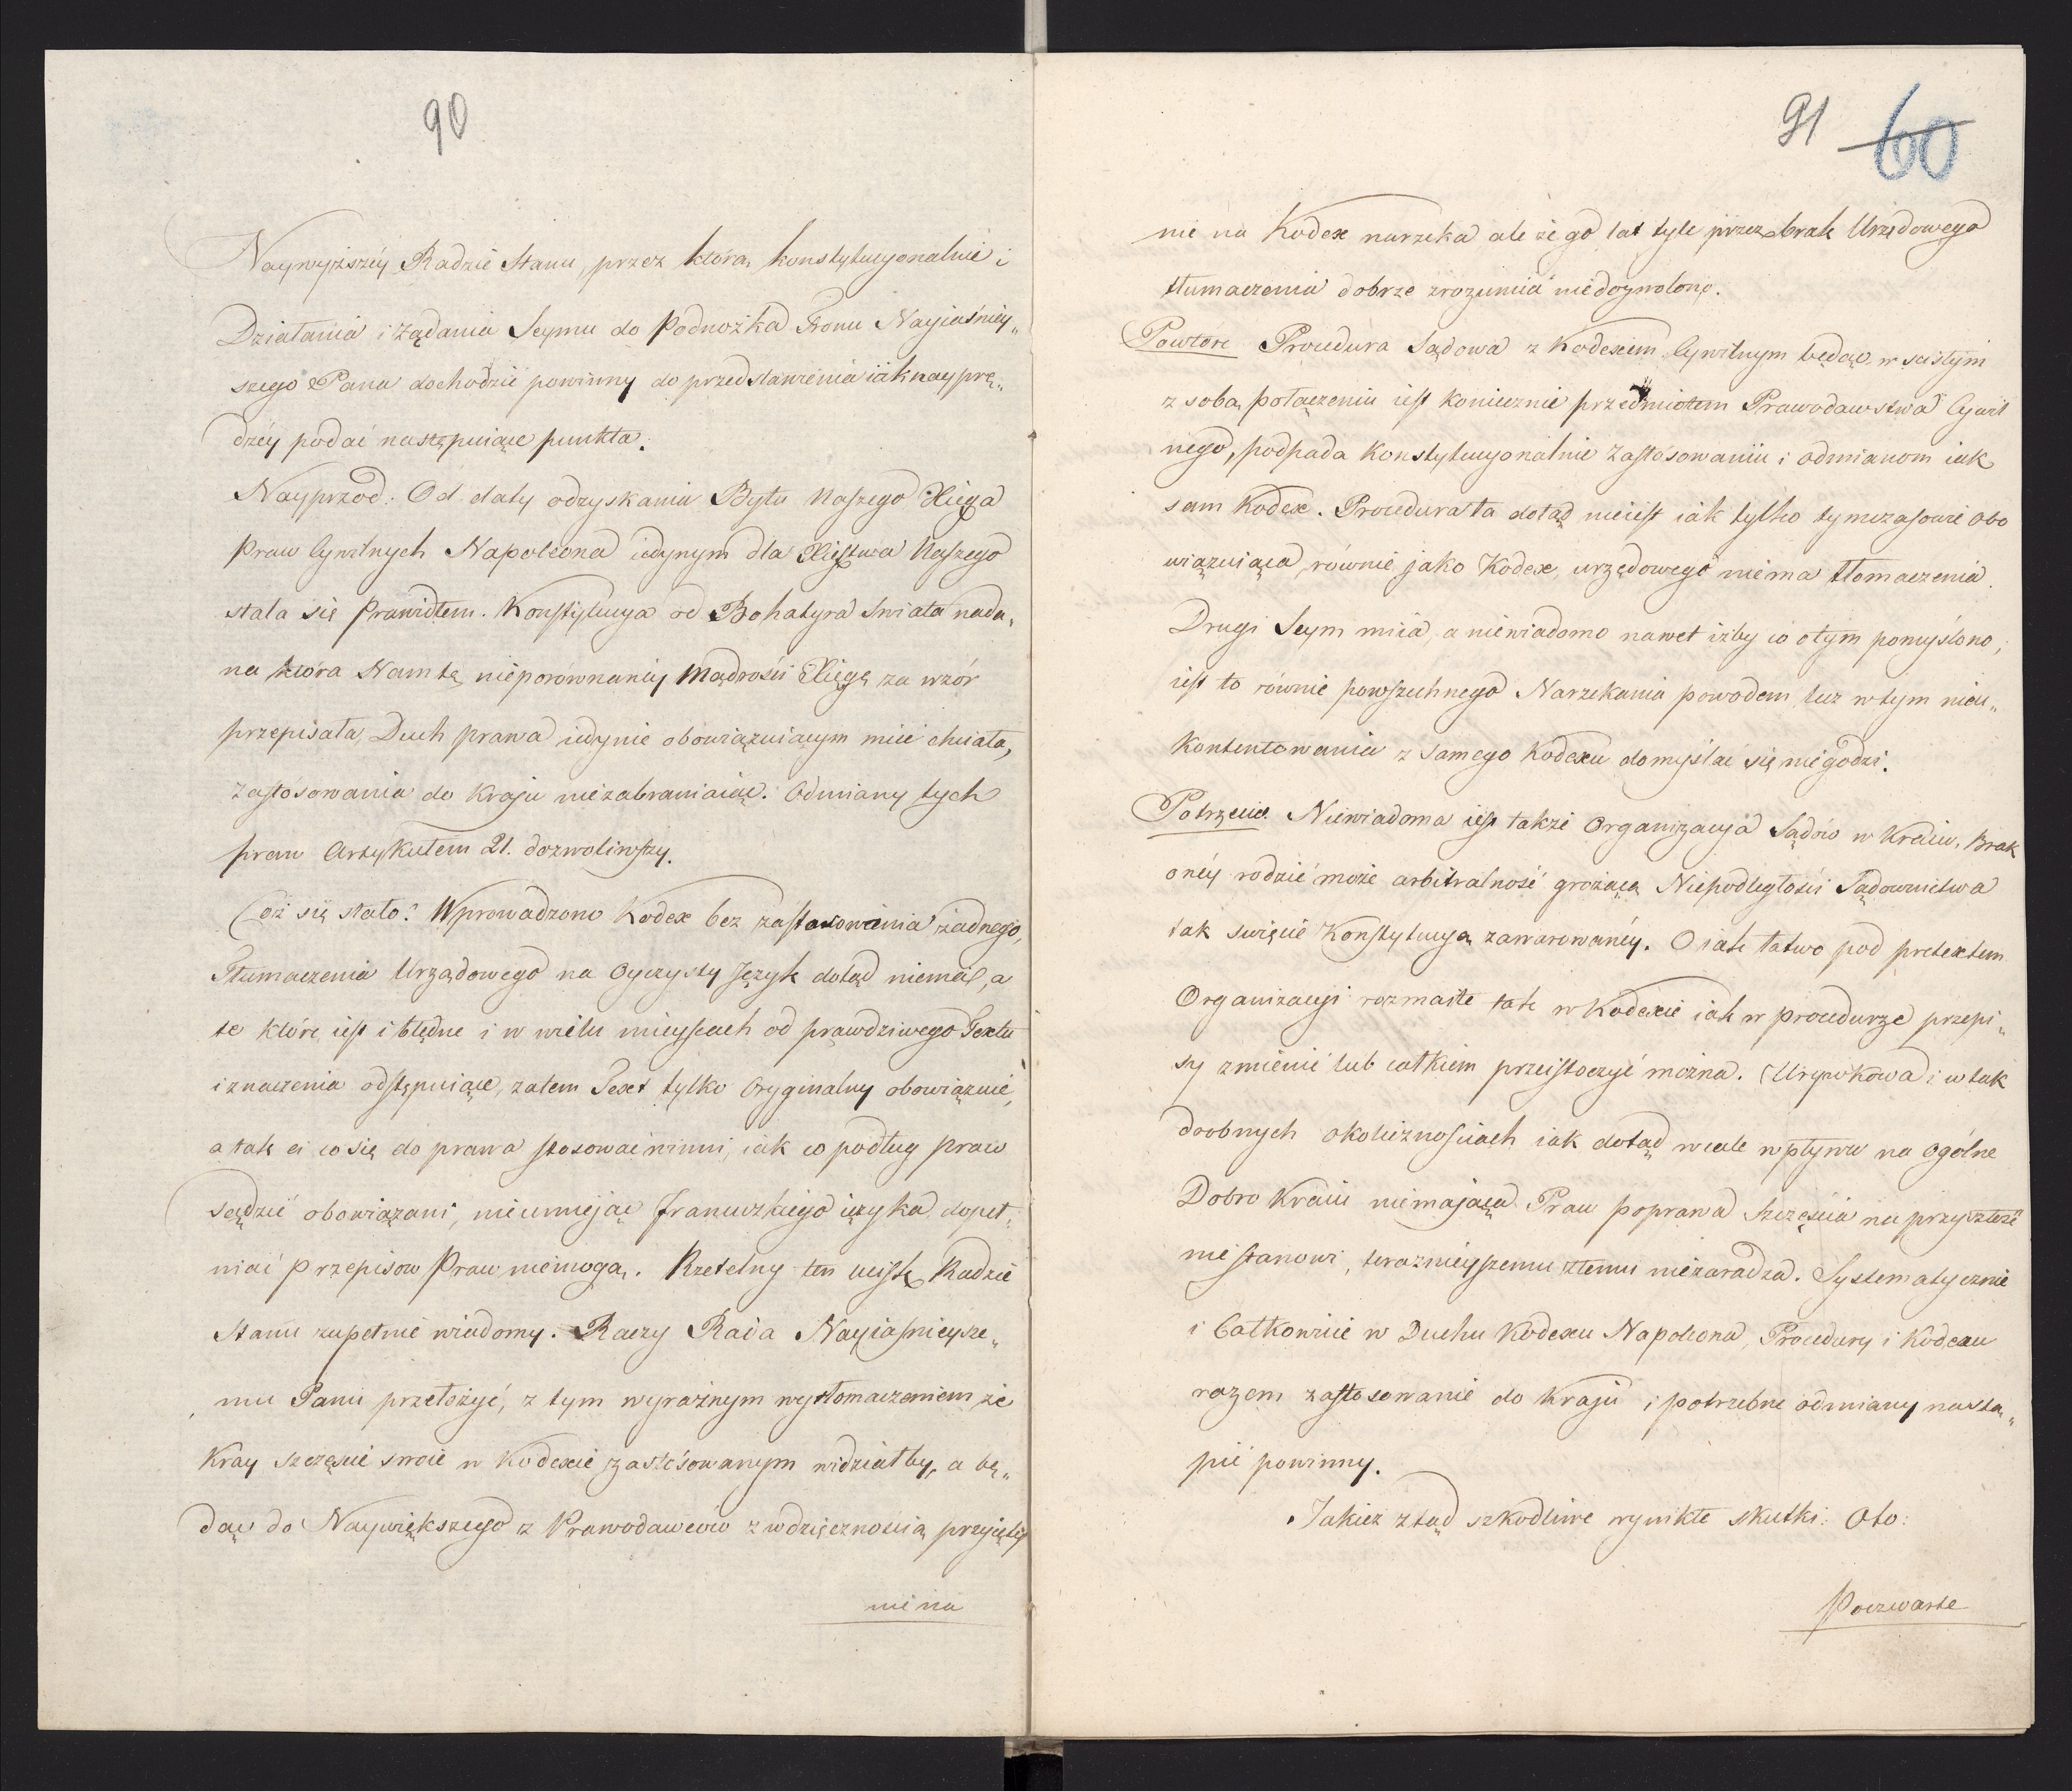 90
Naywyższéy Radzie Stanu, przez którą konstytucyonalnie i
Działania i żądania Seymu do Podnożka Tronu Nayiaśniey„
szego Pana dochodzić powinny do przedstawienia iak nayprę„
dzéy podać następuiące punkta.
Nayprzod. Od daty odzyskania Bytu Naszego Xięga
Praw Cywilnych Napoleona iedynym dla Xięstwa Naszego
stała się Prawidłem. Konstytucya od Bohatyra Swiata nada„
na która Nam tę nieporównaney Mądrości Xięgę za wzór
przepisała, Duch prawa iedynie obowiązuiącym mieć chciała,
zastósowania do Kraju niezabraniaiąc. Odmiany tych
praw Artykułem 21. dozwoliwszy.
Cóż się stało? Wprowadzono Kodex bez zastosowania żadnego,
Tłumaczenia Urządowego na Oyczysty Język dotąd niemasz, a
te które iest i błędne i w wielu mieyscach od prawdziwego Textu
i znaczenia odstępuiące, zatem Text tylko Oryginalny obowiązuie,
a tak ci co się do prawa stosować winni, iak co podług praw
sądzić obowiązani, nieumiejąc francuzkiego ięzyka dopeł„
niać przepisow Praw niemogą. Rzetelny ten ucisk Radzie
Stanu zupełnie wiadomy. Raczy Rada Nayiaśnieysze„
mu Panu przełożyć, z tym wyraźnym wytłomaczeniem że
Kray szczęście swoie w Kodexie zastósowanym widziałby, a bę„
dąc do Naywiększego z Prawodawców z wdzięcznością przyięty
nie na
91 60
nie na Kodex narzeka ale że go lat tyle przez brak Urzędowego
tłumaczenia dobrze zrozumieć niedozwolono.
Powtóre Procedura Sądowa z Kodexem Cywilnym będąc w scisłym
z sobą połączeniu iest koniecznie przedmiotem Prawodawstwa Cywil
nego, podpada Konstytucyonalnie Zastósowaniu i odmianom iak
sam Kodex. Procedura ta dotąd nieiest iak tylko tymczasowie obo
wiązuiąca, równie jako Kodex, urzędowego niema tłomaczenia.
Drugi Seym mija, a niewiadomo nawet iżby co o tym pomyślono,
iest to równie powszechnego Narzekania powodem, lecz w tym nieu„
kontentowania z samego Kodexu domyślać się niegodzi.
Potrzecie Niewiadoma iest także Organizacya Sądów w Kraiu. Brak
onéy rodzić może arbitralność grożącą Niepodległości Sądownictwa
tak swięcie Konstytucyą zawarowanéy. O iak łatwo pod pretextem
Organizacyi rozmaite tak w Kodexie iak w procedurze przepi„
sy zmienić lub całkiem przeistoczyć można. Urywkowa i w tak
drobnych okolicznościach iak dotąd wcale wpływu na Ogólne
Dobro Kraiu niemająca Praw poprawa Szczęścia na przyszłość
niestanowi, teraznieyszemu złemu niezaradza. Systematycznie
i Całkowicie w Duchu Kodexu Napoleona, Procedury i Kodexu
razem zastosowanie do Kraju i potrzebne odmiany nastą„
pić powinny.
Jakież ztąd szkodliwe wynikłe skutki: Oto:
Poczwarte